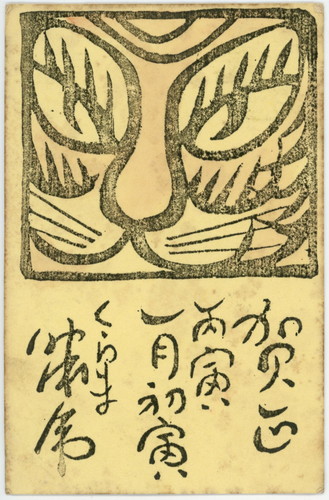 賀正
丙寅
一月初寅
くらま